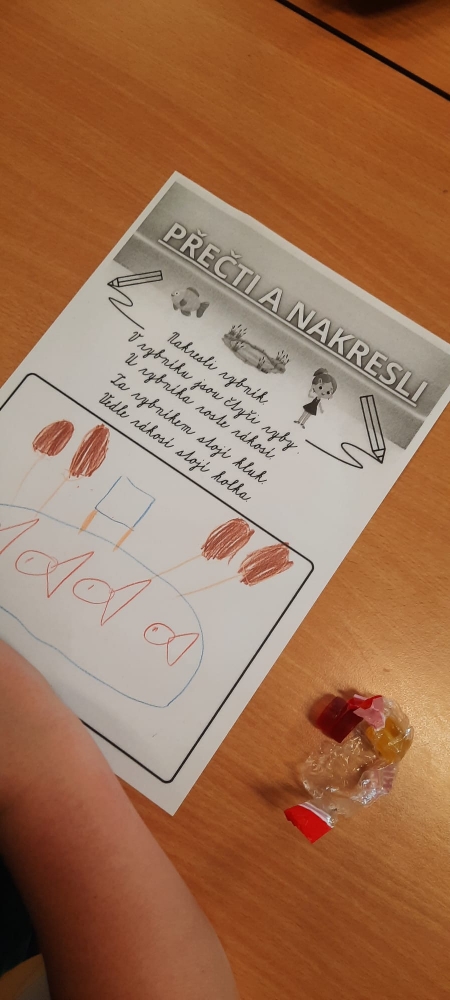 PŘEČTI A NAKRESLI
Nakresli rybník.
V rybníku jsou čtyři ryby.
U rybníka roste rákosí.
Za rybníkem stojí kluk.
Vedle rákosí stojí holka.